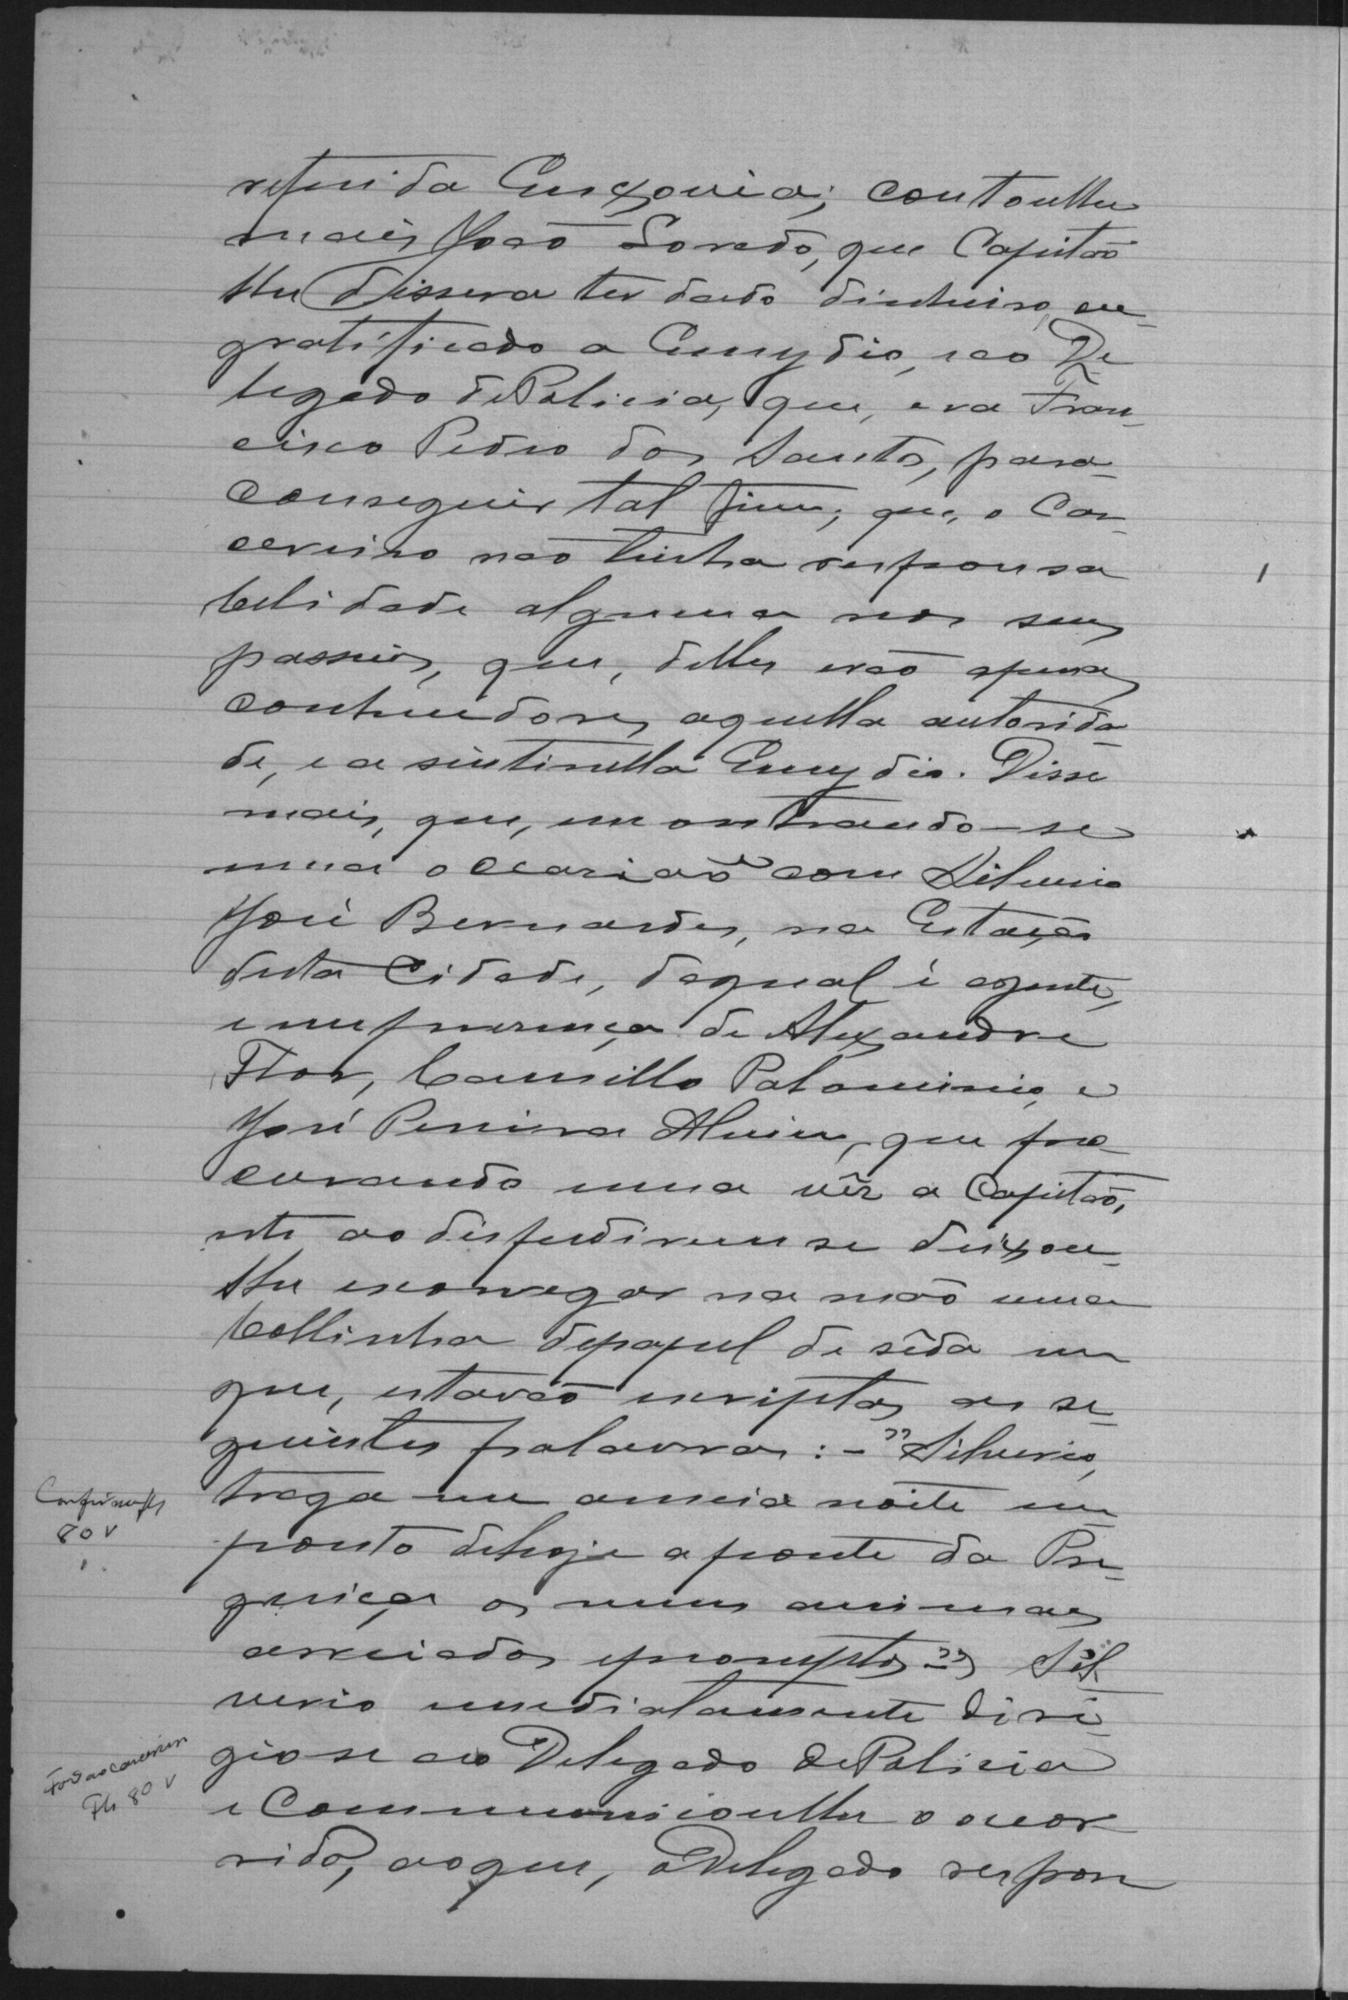 referida Enxovia; contoulhe
mais João Loredo, que Capitão
lhe dissera ter dado dinheiro, ou
gratificado a Emydio, e ao De
legado de Policia, que, era Fran-
cisco Pedro dos Santos, para
conseguir tal fim; que, o Car
cereiro não tinha responsa
belidade alguma nos seus
passeios, que, delles erão apenas
conhecedores, aquella autorida
de, e a sintinella Emydio. Disse
mais, que, encontrando-se
uma occasião com Silverio
José Bernardes, na Estação
desta Cidade, da qual é agente,
e em presença de Alexandre
Flor, Camillo Palominio, e
José Pereira Alvim, que pro
curando uma vêz a Capitão,
este ao despedirem se deixou-
lhe escorregar na mão uma
bollinha de papel de sêda em
que, estavão escriptas as se-
guintes palavras: - "Silverio,
traga me a meia noite em
ponto de hoje a ponte da Pre-
guiça os meus animaes
arreiados e promptos -" Sil
verio immediatamente diri-
gio se ao Delegado de Policia
e Communicoulhe o occor
rido, ao que, o Delegado respon
80 v
Fls 80 v